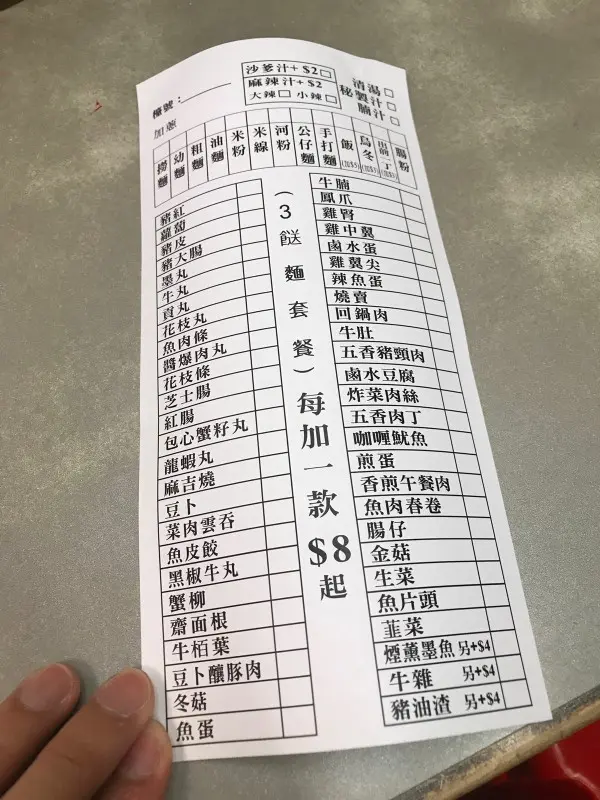 檯號：
沙爹汁+ $2
麻辣汁+ $2
大辣 小辣
清湯
秘製汁
腩汁
撈麵
幼麵
粗麵
油麵
米粉
米線
河粉
公仔麵
手打麵
飯
烏冬
出前一丁
腸粉
豬紅
蘿蔔
豬皮
豬大腸
墨丸
牛丸
貢丸
花枝丸
魚肉條
醬爆肉丸
花枝條
芝士腸
紅腸
包心蟹籽丸
龍蝦丸
麻吉燒
豆卜
菜肉雲吞
魚皮餃
黑椒牛丸
蟹柳
齋面根
牛栢葉
豆卜釀豚肉
冬菇
魚蛋
（3餸麵套餐）每加一款$8起
牛腩
鳳爪
雞腎
雞中翼
鹵水蛋
雞翼尖
辣魚蛋
燒賣
回鍋肉
牛肚
五香豬頸肉
鹵水豆腐
炸菜肉絲
五香肉丁
咖喱魷魚
煎蛋
香煎午餐肉
魚肉春卷
腸仔
金菇
生菜
魚片頭
韮菜
煙薰墨魚 另+$4
牛雜 另+$4
豬油渣 另+$4